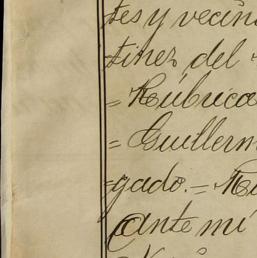 tes y vecin
tines del
= Rúbrica
= Guillerm
gado. = Ru
Ante mí